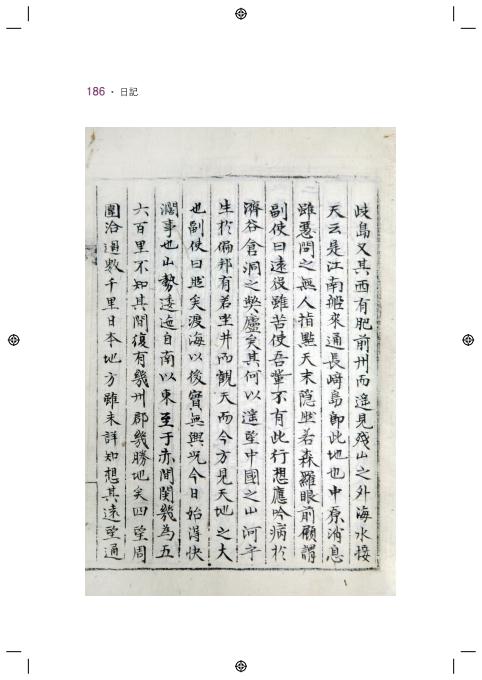 186 · 日記
歧島又其西有肥前州而遥見殘山之外海水接
天云是江南舡來通長﨑島卽此地也中原消息
雖憑問之無人指點天末隱然若森羅眼前顧謂
副使曰遠役雖苦使吾輩不有此行想應吟病於
濟谷倉洞之獘廬矣其何以遥望中國之山河乎
生於偏邦有若坐井而觀天而今方見天地之大
也副使曰然矣渡海以後實無興况今日始得快
濶事也山勢逶迤自南以東至于赤間関幾為五
六百里不知其間復有幾州郡幾勝地矣四望周
圍洽過數千里日本地方雖未詳知想其遠望通